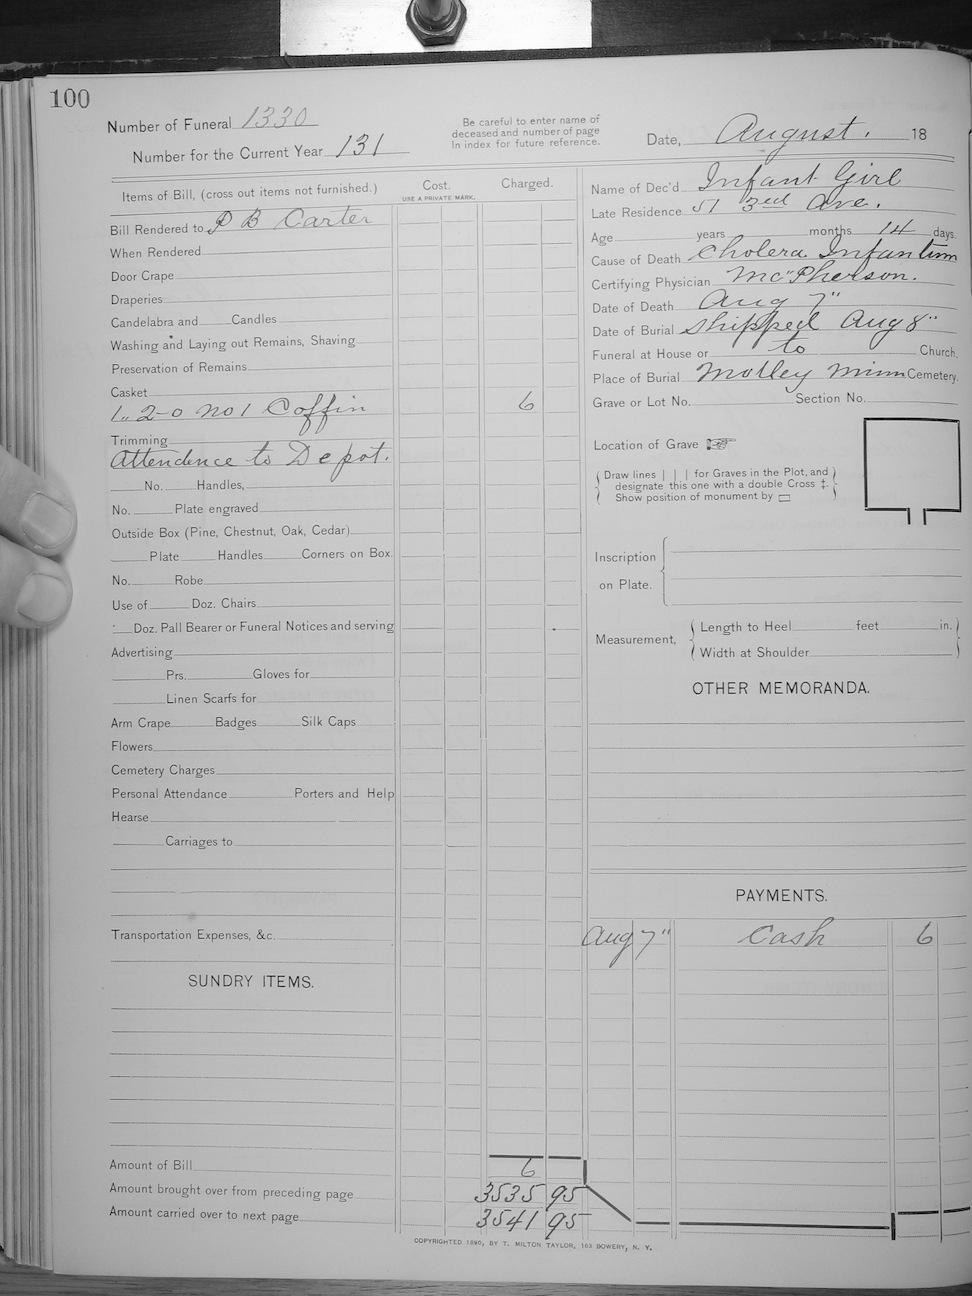 100
Number of Funeral 1330
Number for the Current Year 131
Be careful to enter name of
deceased and number of page
In index for future reference.
Date, August. 18
Items of Bill, (cross out items not furnished.)
Cost.
USE A PRIVATE MARK.
Charged.
Bill Rendered to P B Carter
When Rendered
Door Crape
Draperies
Candelabra and Candles
Washing and Laying out Remains, Shaving
Preservation of Remains
Casket
1" 2-0 no 1 Coffin 6
Trimming
Attendence to Depot.
No. Handles,
No. Plate engraved
Outside Box (Pine, Chestnut, Oak, Cedar)
Plate Handles Corners on Box.
No. Robe
Use of Doz. Chairs
Doz. Pall Bearer or Funeral Notices and serving
Advertising
Prs. Gloves for
Linen Scarfs for
Arm Crape Badges Silk Caps
Flowers
Cemetery Charges
Personal Attendance Porters and Help
Hearse
Carriages to
Transportation Expenses, &c.
SUNDRY ITEMS.
Amount of Bill 6
Amount brought over from preceding page 3535 95
Amount carried over to next page 3541 95
Name of Dec'd Infant Girl
Late Residence 51 3rd Ave.
Age years months 14 days.
Cause of Death Cholera Infantum
Certifying Physician McPherson.
Date of Death Aug 7"
Date of Burial Shipped Aug 8"
Funeral at House or to Church.
Place of Burial Motley Minn Cemetery.
Grave or Lot No. Section No.
Location of Grave
Draw lines | | | for Graves in the Plot, and
designate this one with a double Cross ‡.
Show position of monument by ▭
Inscription
on Plate.
Measurement,
Length to Heel feet in.
Width at Shoulder
OTHER MEMORANDA.
PAYMENTS.
Aug 7" Cash 6
COPYRIGHTED 1890, BY T. MILTON TAYLOR, 163 BOWERY, N. Y.